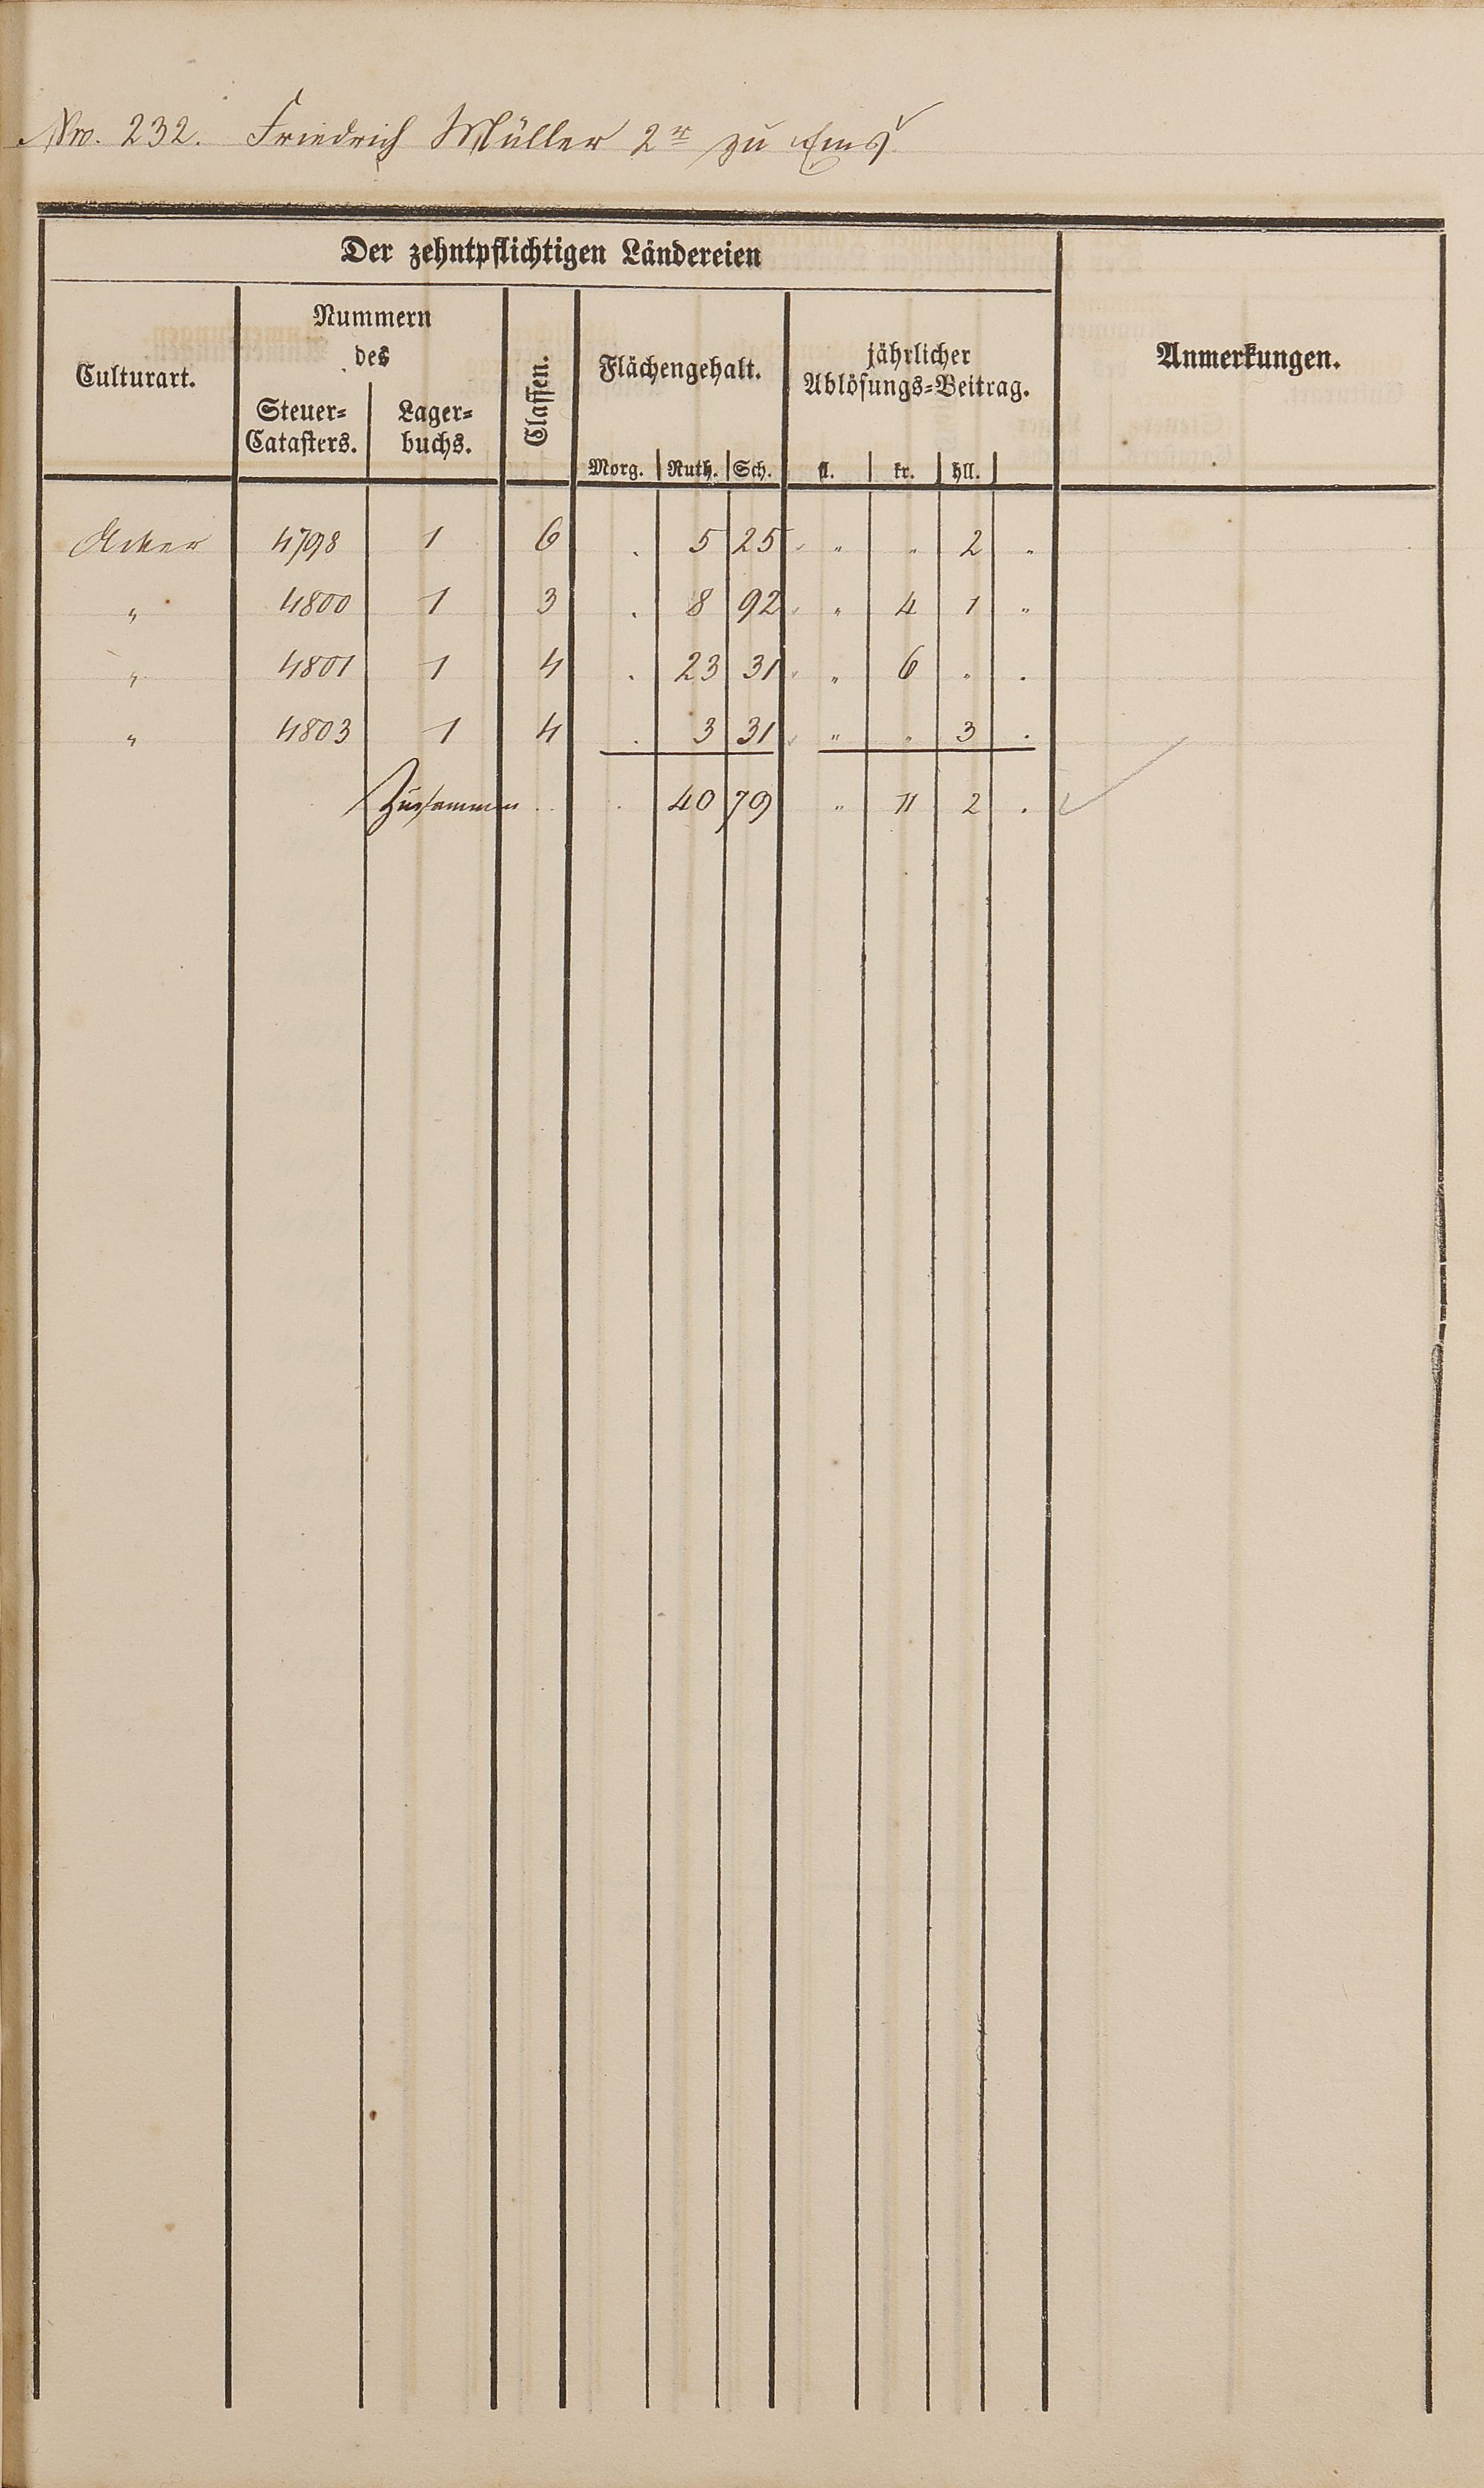 Nro. 232. Friedrich Müller 2r zu Ems
Der zehntpflichtigen Ländereien
Culturart.
Nummern
des
Steuer-
Catasters.
Lager-
buchs.
Classen.
Flächengehalt.
Morg. Ruth. Sch.
jährlicher
Ablösungs-Beitrag.
fl. kr. hll.
Anmerkungen.
Acker 4798 1 6 . 5 25 " " 2 "
" 4800 1 3 . 8 92 " 4 1 "
" 4801 1 4 . 23 31 " 6 " .
" 4803 1 4 . 3 31 " " 3 .
Zusammen . . . 40 79 " 11 2 .